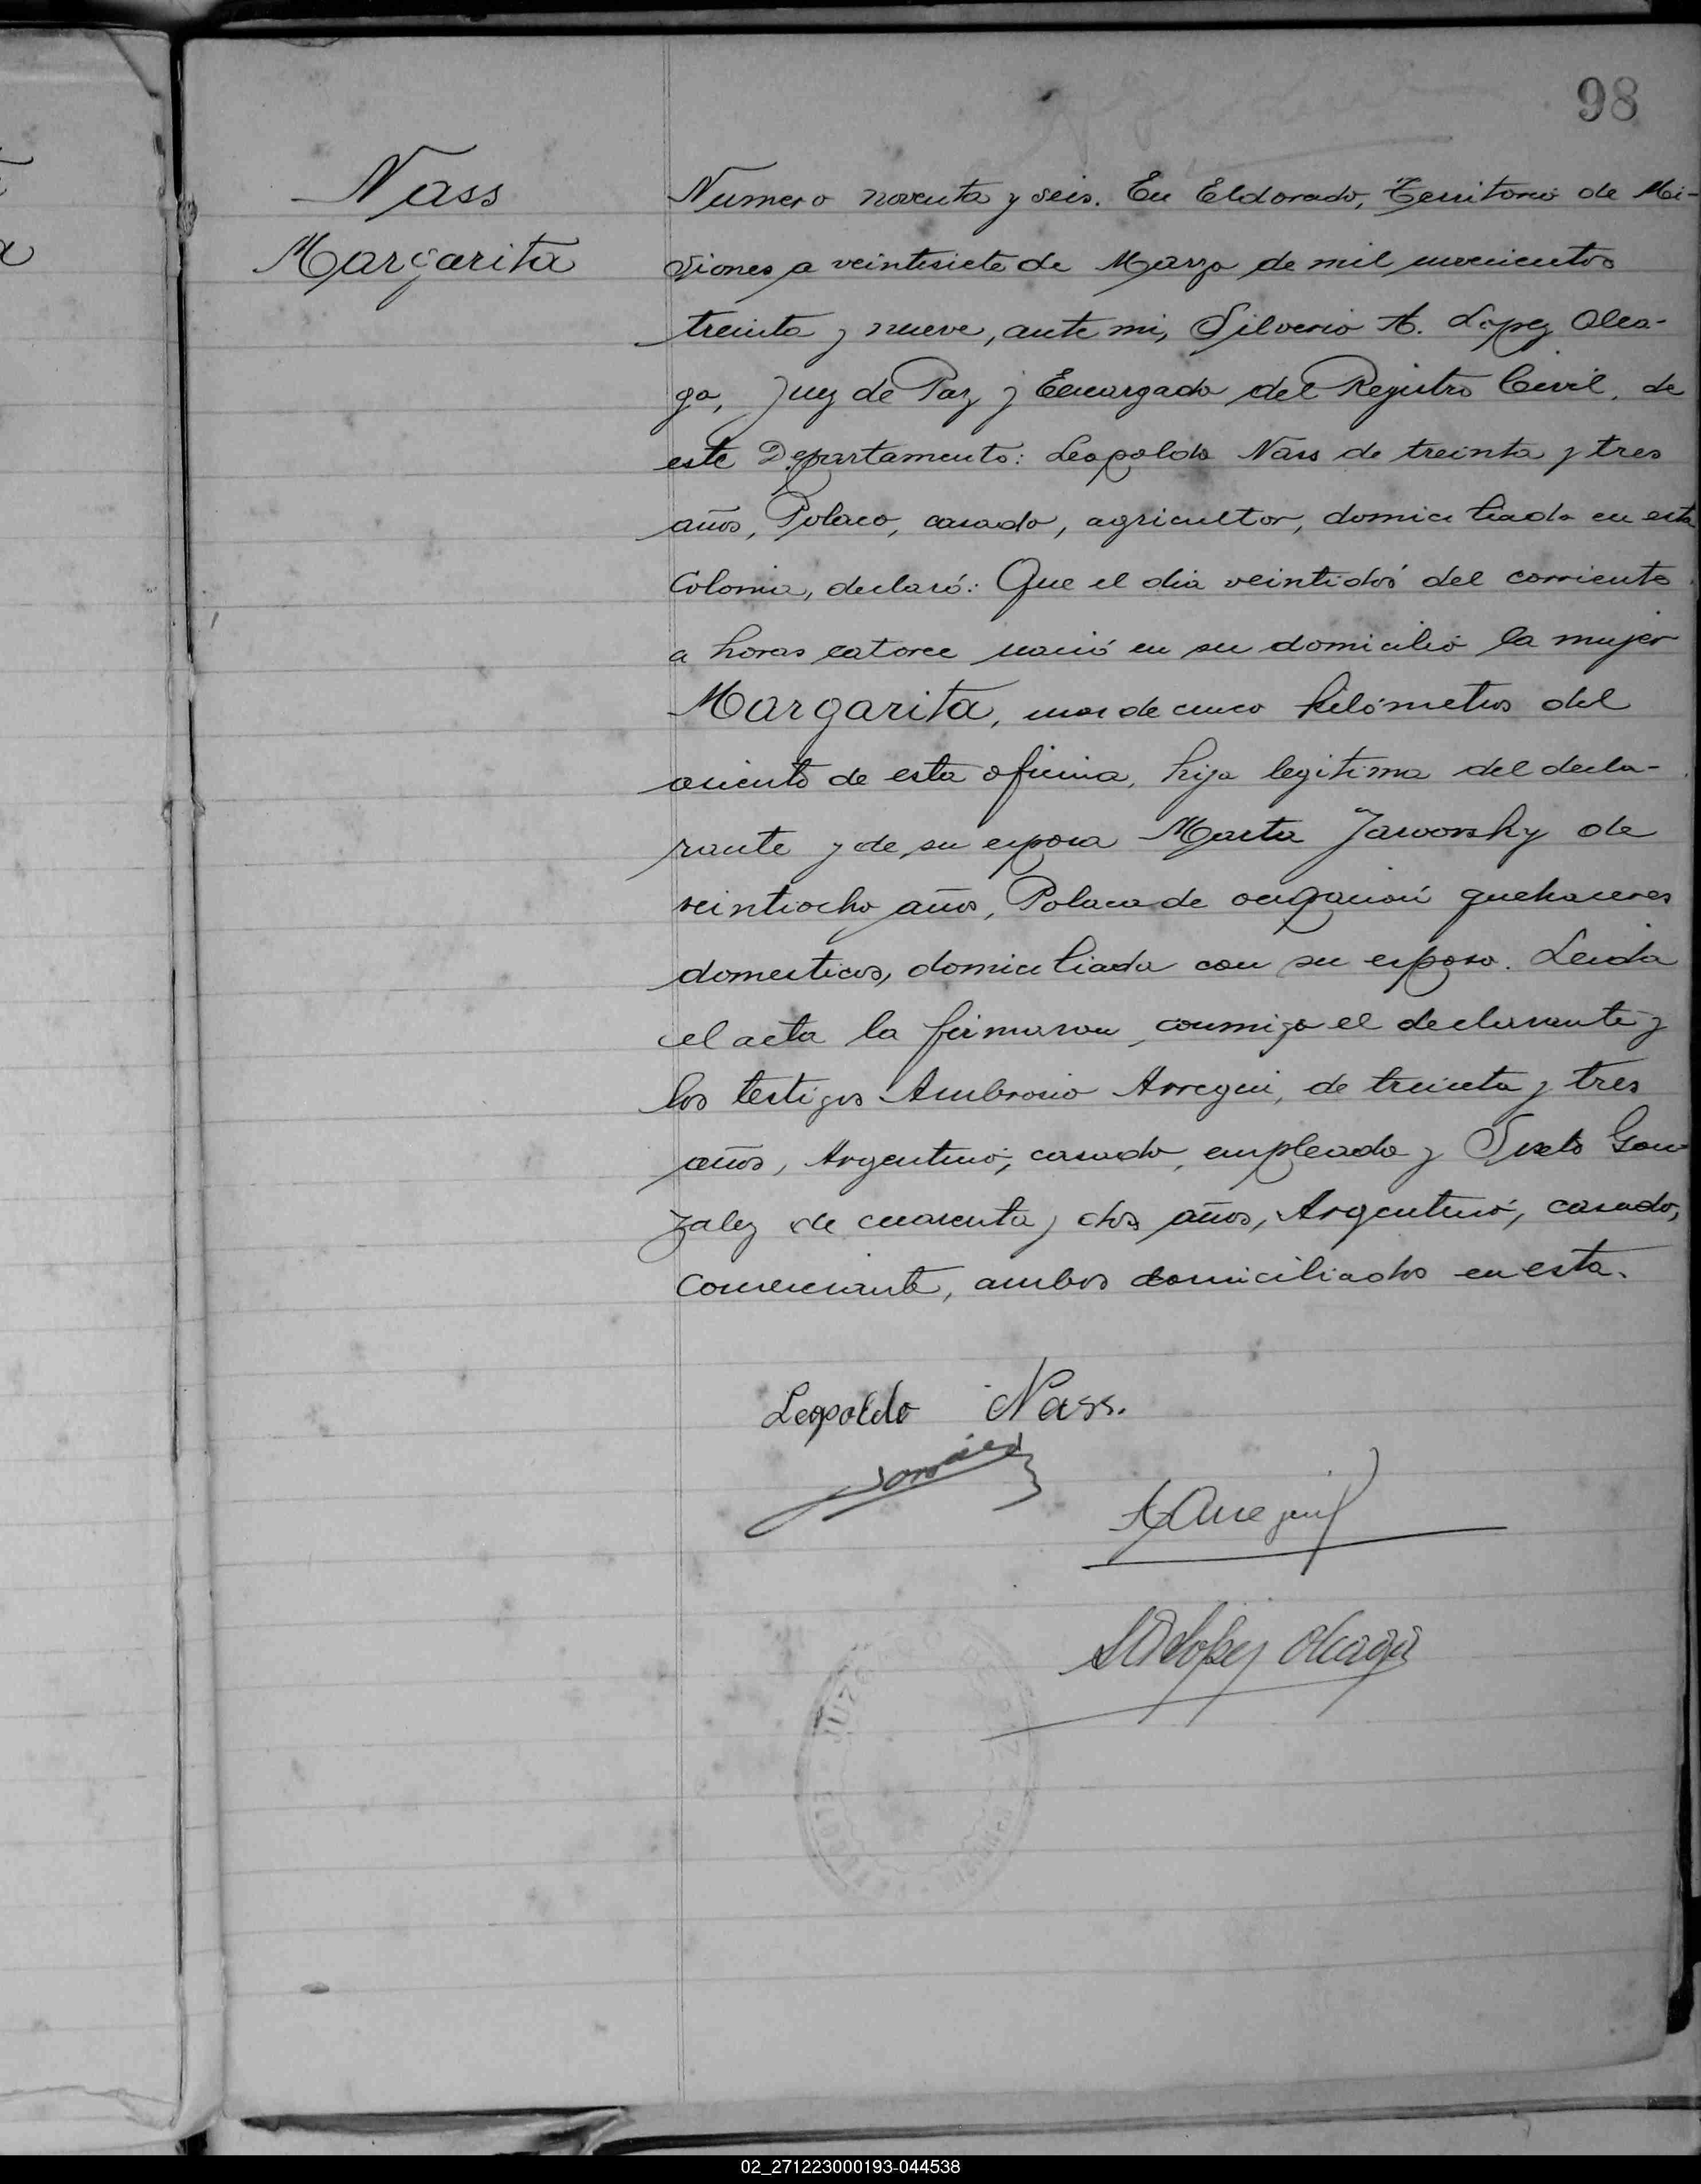 98
Nass
Margarita
Numero noventa y seis. En Eldorado, Territorio de Mi-
siones a veintisiete de Marzo de mil novecientos
treinta y nueve, ante mi, Silverio A. Lopez Olea-
ga, Juez de Paz y Encargado del Registro Civil, de
este Departamento: Leopoldo Nass de treinta y tres
años, Polaco, casado, agricultor, domiciliado en esta
Colonia, declaró: Que el dia veintidós del corriente
a horas catorce nació en su domicilio la mujer
Margarita, mas de cinco kilómetros del
asiento de esta oficina, hija legitima del decla-
rante y de su esposa Marta Jaworsky de
veintiocho años, Polaca de ocupación quehaceres
domesticos, domiciliada con su esposo. Leida
el acta la firmaron, conmigo el declarante y
los testigos Ambrosio Arregui, de treinta y tres
años, Argentino, casado, empleado y Sixto Gon
zalez de cuarenta y dos años, Argentino, casado,
comerciante, ambos domiciliados en esta.
Leopoldo Nass.
A Arregui
JUZG
02_271223000193-044538